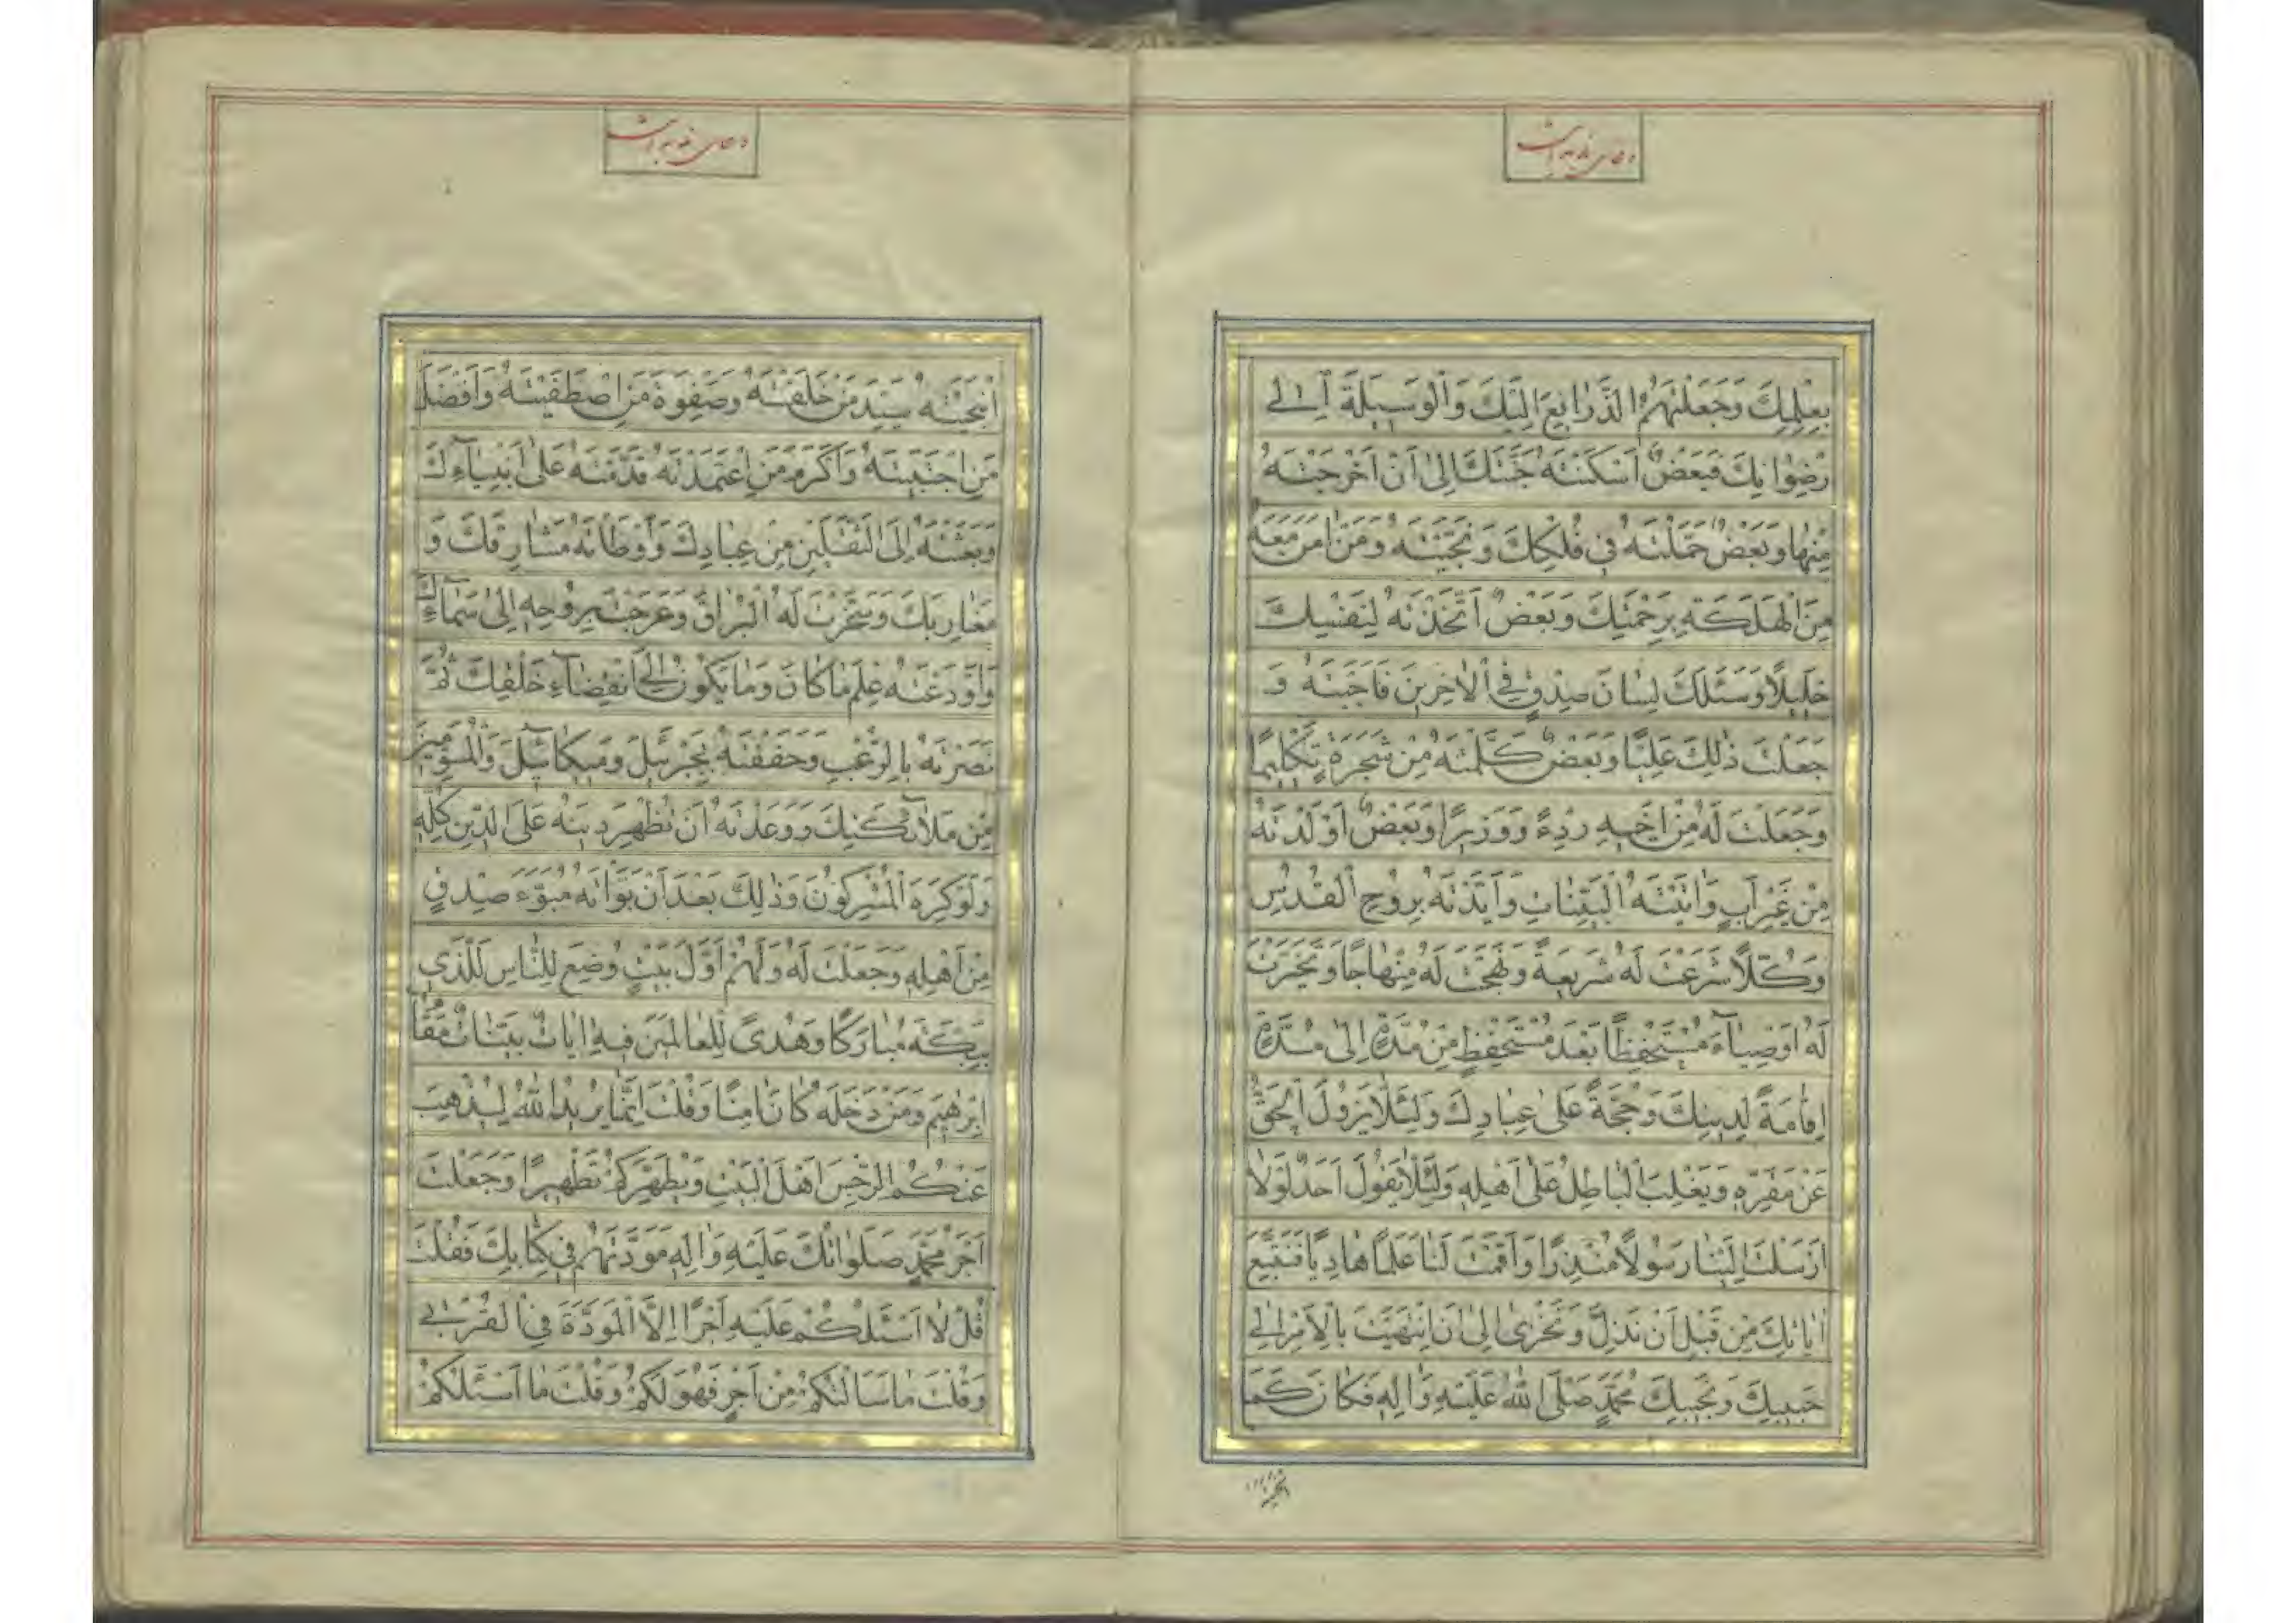 دعای ندبه است
بِعِلْمِكَ وَجَعَلْتَهُمُ الذَّرَايِعَ اِلَيْكَ وَالْوَسِيلَةَ اِلٰى
رِضْوٰانِكَ فَبَعْضٌ اَسْكَنْتَهُ جَنَّتَكَ اِلىٰ اَنْ اَخْرَجْتَهُ
مِنْهٰا وَبَعْضٌ حَمَلْتَهُ فِى فُلْكِكَ وَنَجَّيْتَهُ وَمَنْ اٰمَنَ مَعَهُ
مِنَ الْهَلَكَةِ بِرَحْمَتِكَ وَبَعْضٌ اتَّخَذْتَهُ لِنَفْسِكَ
خَلِيلًا وَسَئَلَكَ لِسٰانَ صِدْقٍ فِى الْاٰخِرِينَ فَاَجَبْتَهُ وَ
جَعَلْتَ ذٰلِكَ عَلِيًّا وَبَعْضٌ كَلَّمْتَهُ مِنْ شَجَرَةٍ تَكْلِيمًا
وَجَعَلْتَ لَهُ مِنْ اَخِيهِ رِدْءً وَوَزِيرًا وَبَعْضٌ اَوْلَدْتَهُ
مِنْ غَيْرِ اَبٍ وَاٰتَيْتَهُ الْبَيِّنٰاتِ وَاَيَّدْتَهُ بِرُوحِ الْقُدُسِ
وَكُلًّا شَرَعْتَ لَهُ شَرِيعَةً وَنَهَجْتَ لَهُ مِنْهٰاجًا وَتَخَيَّرْتَ
لَهُ اَوْصِيٰآءَ مُسْتَحْفِظًا بَعْدَ مُسْتَحْفِظٍ مِنْ مُدَّةٍ اِلىٰ مُدَّةٍ
اِقٰامَةً لِدِينِكَ وَحُجَّةً عَلىٰ عِبٰادِكَ وَلِئَلّٰا يَزُولَ الْحَقُّ
عَنْ مَقَرِّهِ وَيَغْلِبَ الْبٰاطِلُ عَلىٰ اَهْلِهِ وَلِئَلّٰا يَقُولَ اَحَدٌ لَوْلٰا
اَرْسَلْتَ اِلَيْنٰا رَسُولًا مُنْذِرًا وَاَقَمْتَ لَنٰا عَلَمًا هٰادِيًا فَنَتَّبِعَ
اٰيٰاتِكَ مِنْ قَبْلِ اَنْ نَذِلَّ وَنَخْزىٰ اِلىٰ اَنِ انْتَهَيْتَ بِالْاَمْرِ اِلىٰ
حَبِيبِكَ وَنَجِيبِكَ مُحَمَّدٍ صَلَّى اللهُ عَلَيْهِ وَاٰلِهِ فَكٰانَ كَمَا
انتجبته
دعای ندبه است
انْتَجَبْتَهُ سَيِّدَ مَنْ خَلَقْتَهُ وَصَفْوَةَ مَنِ اصْطَفَيْتَهُ وَاَفْضَلَ
مَنِ اجْتَبَيْتَهُ وَاَكْرَمَ مَنِ اعْتَمَدْتَهُ قَدَّمْتَهُ عَلىٰ اَنْبِيٰآءِكَ
وَبَعَثْتَهُ اِلَى الثَّقَلَيْنِ مِنْ عِبٰادِكَ وَاَوْطَاْتَهُ مَشٰارِقَكَ وَ
مَغٰارِبَكَ وَسَخَّرْتَ لَهُ الْبُرٰاقَ وَعَرَجْتَ بِرُوحِهِ اِلىٰ سَمٰآءِكَ
وَاَوْدَعْتَهُ عِلْمَ مٰا كٰانَ وَمٰا يَكُونُ اِلَى انْقِضٰآءِ خَلْقِكَ ثُمَّ
نَصَرْتَهُ بِالرُّعْبِ وَحَفَفْتَهُ بِجَبْرَئِيلَ وَمِيكٰائِيلَ وَالْمُسَوِّمِينَ
مِنْ مَلٰآئِكَتِكَ وَوَعَدْتَهُ اَنْ تُظْهِرَ دِينَهُ عَلَى الدِّينِ كُلِّهِ
وَلَوْ كَرِهَ الْمُشْرِكُونَ وَذٰلِكَ بَعْدَ اَنْ بَوَّاْتَهُ مُبَوَّءَ صِدْقٍ
مِنْ اَهْلِهِ وَجَعَلْتَ لَهُ وَلَهُمْ اَوَّلَ بَيْتٍ وُضِعَ لِلنّٰاسِ لَلَّذِى
بِبَكَّةَ مُبٰارَكًا وَهُدًى لِلْعٰالَمِينَ فِيهِ اٰيٰاتٌ بَيِّنٰاتٌ مَقٰامُ
اِبْرٰهِيمَ وَمَنْ دَخَلَهُ كٰانَ اٰمِنًا وَقُلْتَ اِنَّمٰا يُرِيدُ اللهُ لِيُذْهِبَ
عَنْكُمُ الرِّجْسَ اَهْلَ الْبَيْتِ وَيُطَهِّرَكُمْ تَطْهِيرًا وَجَعَلْتَ
اَجْرَ مُحَمَّدٍ صَلَوٰاتُكَ عَلَيْهِ وَاٰلِهِ مَوَدَّتَهُمْ فِى كِتٰابِكَ فَقُلْتَ
قُلْ لٰا اَسْئَلُكُمْ عَلَيْهِ اَجْرًا اِلَّا الْمَوَدَّةَ فِى الْقُرْبٰى
وَقُلْتَ مٰا سَاَلْتُكُمْ مِنْ اَجْرٍ فَهُوَ لَكُمْ وَقُلْتَ مٰا اَسْئَلُكُمْ